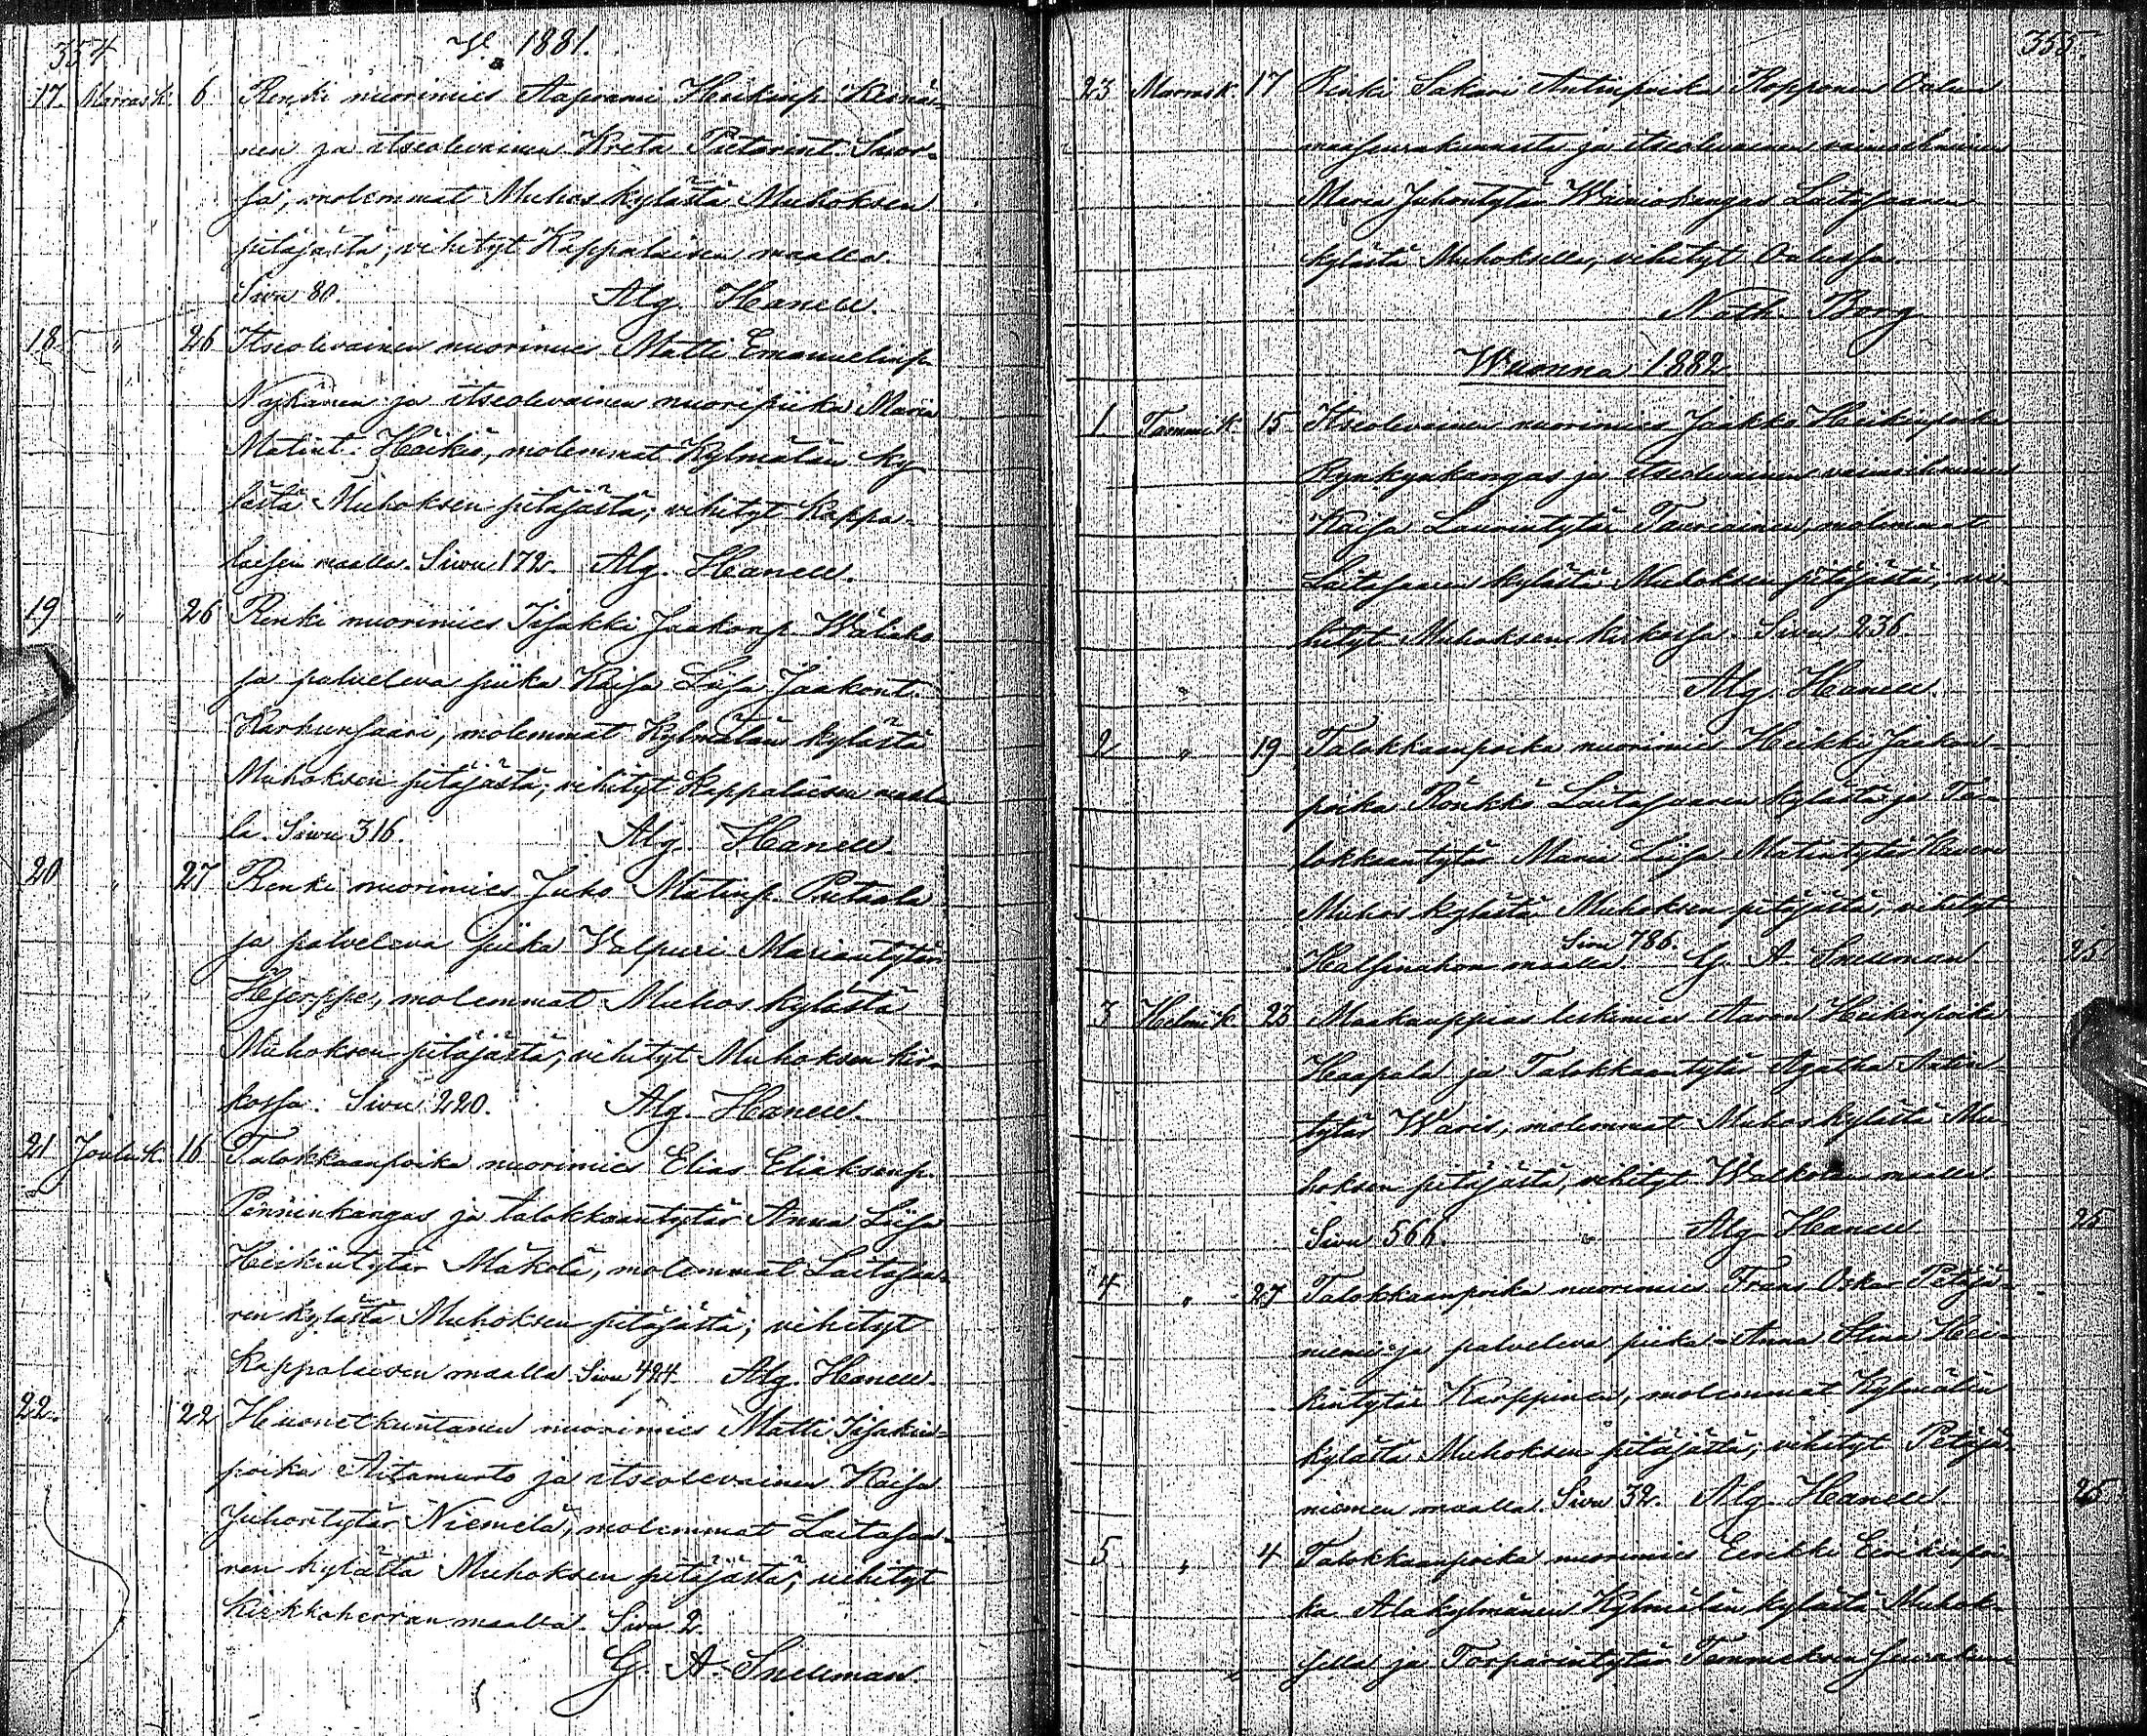 354
V. 1881.
17. Marras k. 6 Renki nuorimies Aaprami Heikinp. Keinä-
nen ja itseolevainen Kreta Pietarint. Suor-
sa, molemmat Muhos kylästä Muhoksen
pitäjästä; vihityt Kappalaisen maalla.
Sivu 80. Alg. Hanell.
18. " 26 Itseolevainen nuorimies Matti Emanuelinp.
Nykänen ja itseolevainen nuoripiika Maria
Matint. Häikiö, molemmat Kylmälän ky-
lästä Muhoksen pitäjästä; vihityt Kappa-
laisen maalla. Sivu 172. Alg. Hanell.
19 " 26 Renki nuorimies Iisakki Jaakonp. Wälaho
ja palveleva piika Kaisa Liisa Jaakont.
Karhunsaari, molemmat Kylmälän kylästä
Muhoksen pitäjästä; vihityt Kappalaisen maal-
la. Sivu 316. Alg. Hanell.
20 " 27 Renki nuorimies Juho Matinp. Pietaala
ja palveleva piika Valpuri Mariantytär
Hjerppe, molemmat Muhos kylästä
Muhoksen pitäjästä; vihityt Muhoksen kir-
kossa. Sivu 220. Alg. Hanell.
21 Joulu k. 16 Talokkaanpoika nuorimies Elias Eliaksenp.
Penninkangas ja talokkaantytär Anna Liisa
Heikintytär Mäkelä, molemmat Laitasaa-
ren kylästä Muhoksen pitäjästä; vihityt
Kappalaisen maalla. Sivu 424. Alg. Hanell.
22. " 22 Huonetkuntanen nuorimies Matti Iisakin-
poika Aitamurto ja itseolevainen Kaisa
Juhontytär Niemelä, molemmat Laitasaa-
ren kylästä Muhoksen pitäjästä; vihityt
Kirkkoherran maalla. Sivu 2.
G. A. Snellman.
355.
23 Marras k. 17 Renki Sakari Antinpoika Ropponen Oulun
maaseurakunnasta ja itseolevainen vaimoihminen
Maria Juhontytär Wainiokangas Laitasaaren
kylästä Muhoksella, vihityt Oulussa.
Nath. Borg
Wuonna 1882
1 Tammi k. 15 Itseolevainen nuorimies Jaakko Heikinpoika
Kynkynkangas ja itseolevainen vaimoihminen
Kaisa Laurintytär Tauriainen, molemmat
Laitasaaren kylästä Muhoksen pitäjästä, vi-
hityt Muhoksen kirkossa. Sivu 236.
Alg. Hanell.
2 " 19 Talokkaanpoika nuorimies Heikki Jaakon-
poika Rönkkö Laitasaaren kylästä ja Ta-
lokkaantytär Maria Liisa Matintytär
Muhos kylästä Muhoksen pitäjästä, vihityt
Halsinahon maalla. Sivu 786. G. A. Snellman 25
3 Helmi k. 23 Maakauppias leskimies Aaron Heikinpoika
Haapala ja Talokkaantytär Agatha Antin-
tytär Waris, molemmat Muhos kylästä Mu-
hoksen pitäjästä, vihityt Walkolan maalla.
Sivu 566. Alg. Hanell 25
4 " 27 Talokkaanpoika nuorimies Frans Oskar Petäjä-
niemi ja palveleva piika Anna Stina Hei-
kintytär Karppinen, molemmat Kylmälän
kylästä Muhoksen pitäjästä, vihityt Petäjä-
niemen maalla. Sivu 32. Alg. Hanell 25
5 " 4 Talokkaanpoika nuorimies Eerikki Eerikinpoi-
ka Alakylmänen Kylmälän kylästä Muhok-
sella ja Torparintytär Temmeksen seurakun-